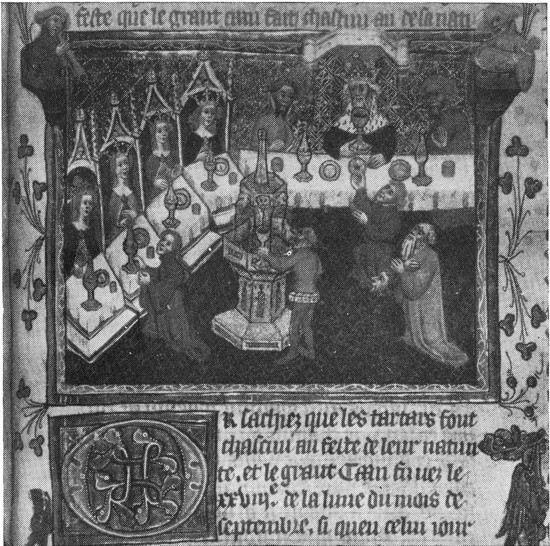 feste que le grant caan fait chascun an de sa nati
R sachiez que les tartars font
chascun an feste de leur natiui
te. et le grant Caan fu nez le
xxviijᵉ. de la lune du mois de
septembre, si que celui iour